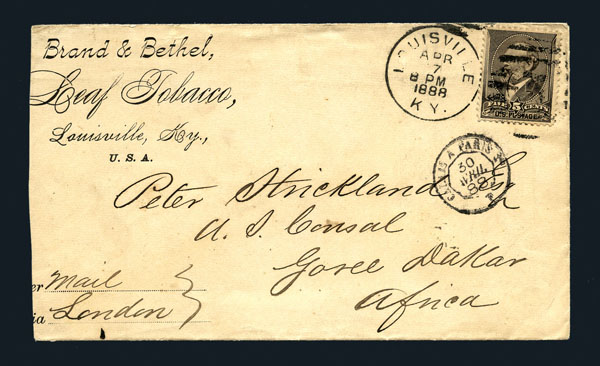 Brand & Bethel,
Leaf Tobacco,
Louisville, Ky.,
U. S. A.
LOUISVILLE
APR
7
8 PM
1888
KY.
FIVE 5 CENTS
U.S. POSTAGE
CALAIS A PARIS
30
AVRIL
88
Peter Strickland Esq
U. S. Consul
Goree Dakar
Africa
er Mail
ia London